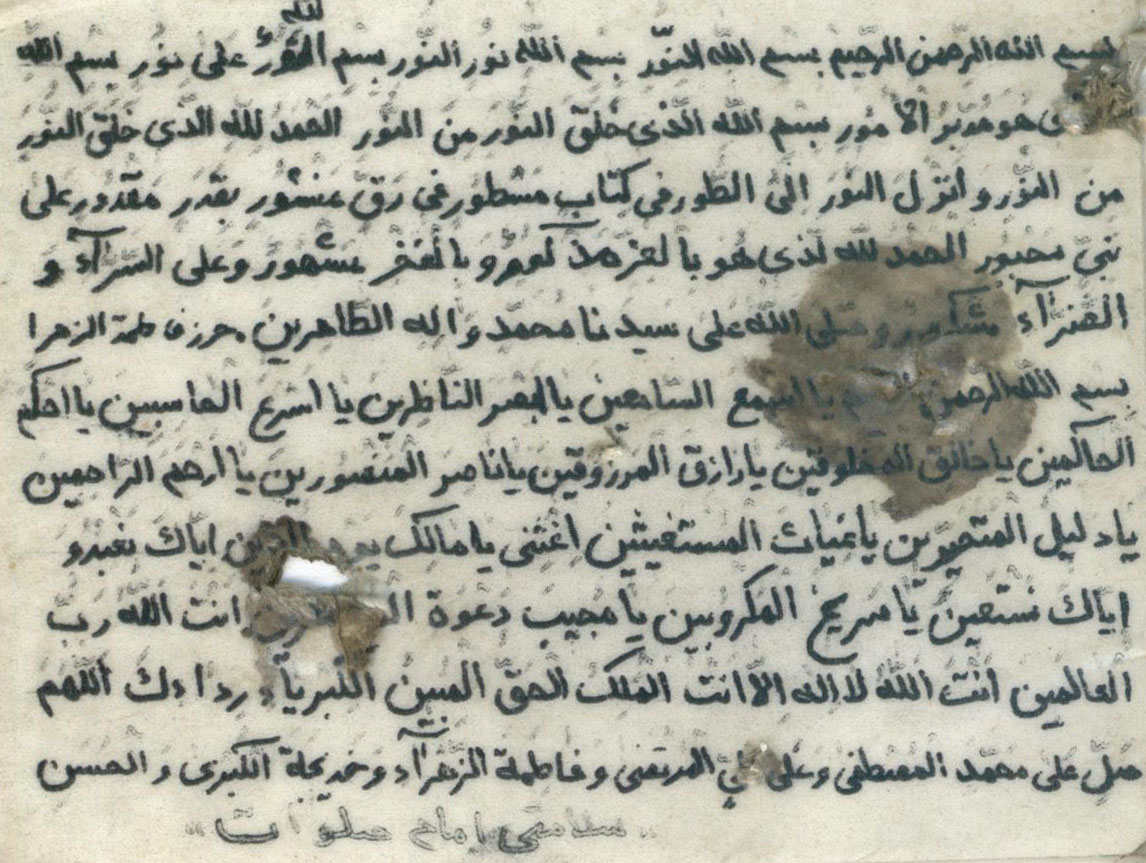 الله
بسم الله الرحمن الرحیم بسم الله النّور بسم الله نور النّور بسم النّورٌ علی نوُر بسم الله
هو مدبّر الأمُور بسم الله الّذی خلق النوّر من النوُر الحمد للهِ الّذی خلق النوُر
من النوّر و أنزل النوَر الیُ الطّور فی کتاب مَسْطور فی رَقّ مَنشوُر بقَدَر مَقدوُر علی
نبیّ محبوُر الحَمد للهِ لّذی هُو بالعزّ مذکوُر و بالفخر مشهُور و علی السّراآء و
الضّرآء مشکور و صلی الله علی سیدنا محمد و اله الطاهرین حرز فاطمة الزهرا
بسم الله الرحمن یا اسمع السّامعین یا ابصر النّاظرین یا اسرع الحاسبین یا احکم
الحاکمین یا خالق المخلوقین یا رازق المرزوقین یا ناصر المنصورین یا ارحم الراحمین
یا دلیل المتحیرین یا غیاث المستغیثین اغثنی یا مالک یوم الدین ایاک نعبد و
ایاک نستعین یا صریخ المکروبین یا مجیب دعوة انت الله رب
العالمین انت الله لا اله الا انت الملک الحق المبین الکبریاء رداءک اللهم
صلّ علی محمد المصطفی و علی علیّ المرتضی و فاطمة الزهرآء و خدیجة الکبری و الحسن
سلامتی امام صلوات